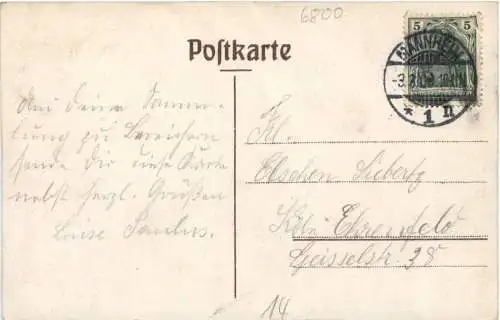 6800
Postkarte
5 5
MANNHEIM
* 1 n
Um Deine Samm-
lung zu bereichern
sende Dir diese Karte
nebst herzl. Grüßen
Luise Paulus.
Frl.
Elschen Siebertz
Köln Ehrenfeld
Geisselstr. 38
14